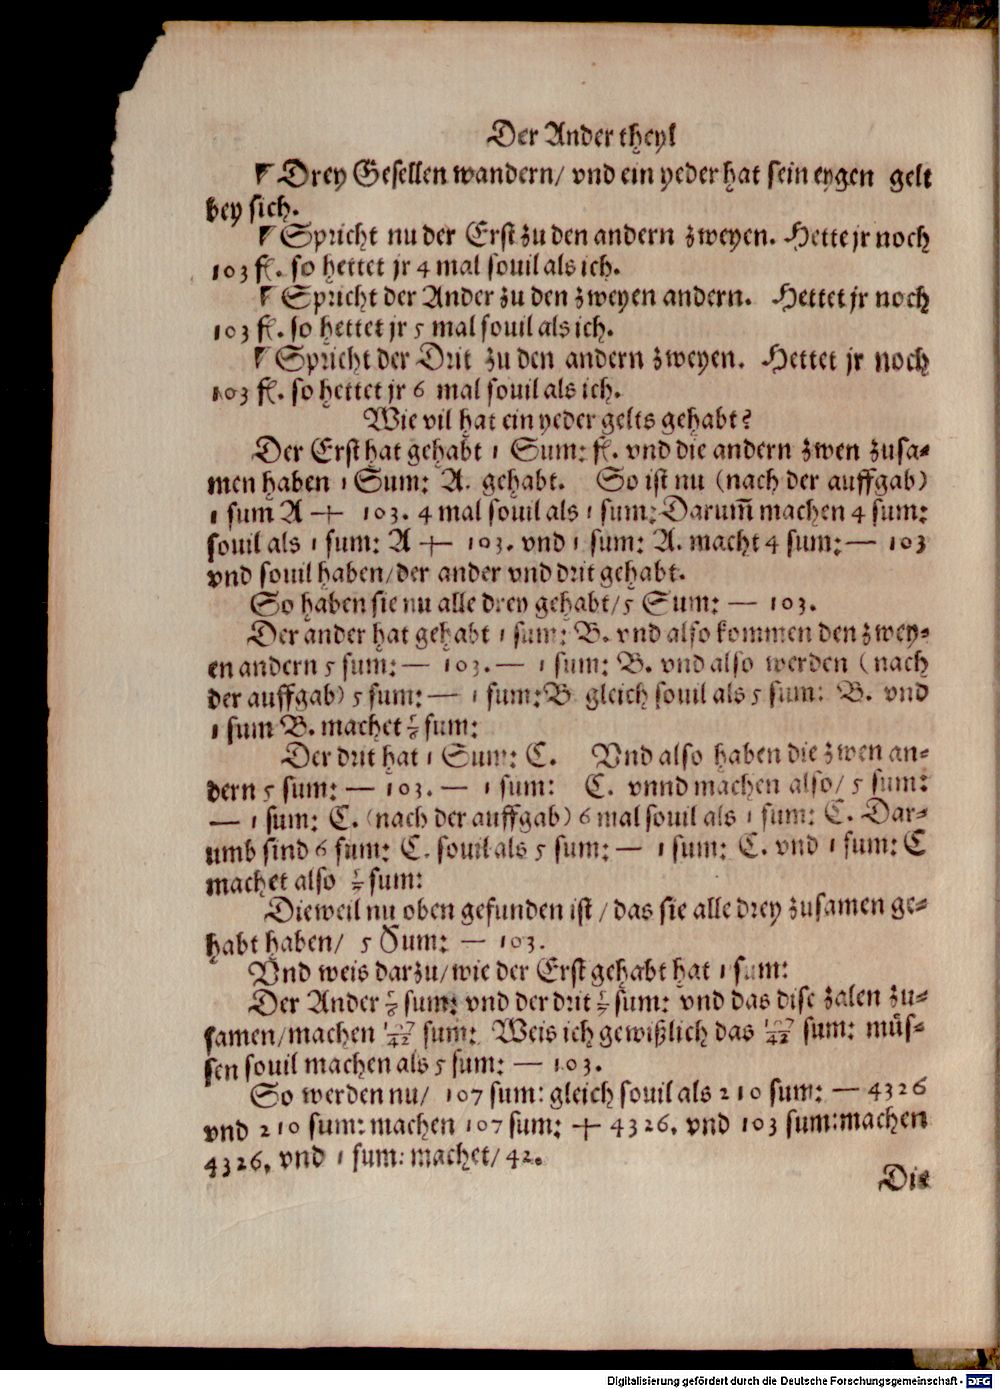 Der Ander theyl
Drey Gesellen wandern/ vnd ein yeder hat sein eygen gelt
bey sich.
Spricht nu der Erst zu den andern zweyen. Hette jr noch
103 fl. so hettet jr 4 mal souil als ich.
Spricht der Ander zu den zweyen andern. Hettet jr noch
103 fl. so hettet jr 5 mal souil als ich.
Spricht der Drit zu den andern zweyen. Hettet jr noch
103 fl. so hettet jr 6 mal souil als ich.
Wie vil hat ein yeder gelts gehabt?
Der Erst hat gehabt 1 Sum: fl. vnd die andern zwen zusa-
men haben 1 Sum: A. gehabt. So ist nu (nach der auffgab)
1 sum A + 103. 4 mal souil als 1 sum: Darum̄ machen 4 sum:
souil als 1 sum: A + 103. vnd 1 sum: A. macht 4 sum: — 103
vnd souil haben/ der ander vnd drit gehabt.
So haben sie nu alle drey gehabt/ 5 Sum: — 103.
Der ander hat gehabt 1 sum: B. vnd also kommen den zwey-
en andern 5 sum: — 103. — 1 sum: B. vnd also werden (nach
der auffgab) 5 sum: — 1 sum: B gleich souil als 5 sum: B. vnd
1 sum B. machet 5/6 sum:
Der drit hat 1 Sum: C. Vnd also haben die zwen an-
dern 5 sum: — 103. — 1 sum: C. vnnd machen also/ 5 sum:
— 1 sum: C. (nach der auffgab) 6 mal souil als 1 sum: C. Dar-
umb sind 6 sum: C. souil als 5 sum: — 1 sum: C. vnd 1 sum: C
machet also 5/7 sum:
Dieweil nu oben gefunden ist/ das sie alle drey zusamen ge-
habt haben/ 5 Sum: — 103.
Vnd weis darzu/ wie der Erst gehabt hat 1 sum:
Der Ander 5/6 sum: vnd der drit 5/7 sum: vnd das dise zalen zu-
samen/ machen 107/42 sum: Weis ich gewißlich das 107/42 sum: müs-
sen souil machen als 5 sum: — 103.
So werden nu/ 107 sum: gleich souil als 210 sum: — 4326
vnd 210 sum: machen 107 sum: + 4326. vnd 103 sum: machen
4326, vnd 1 sum: machet/ 42.
Die
Digitalisierung gefördert durch die Deutsche Forschungsgemeinschaft - DFG